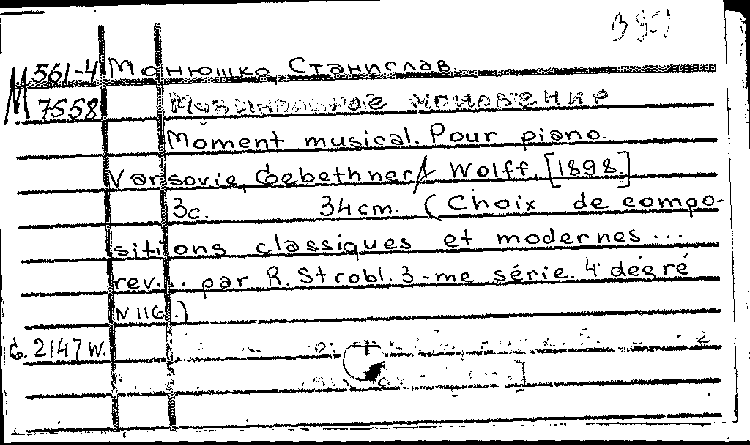 М 561-4 Монюшко, Станислав.
7558 Музыкальное мгновение
Moment musical. Pour piano.
Varsovie, Gebethner & Wolff, [1898.]
3с. 34cm. (Choix de compo-
sitions classiques et modernes...
rev... par R. Strobl. 3-me série. 4 degré
N 116.)
6. 2147 w.